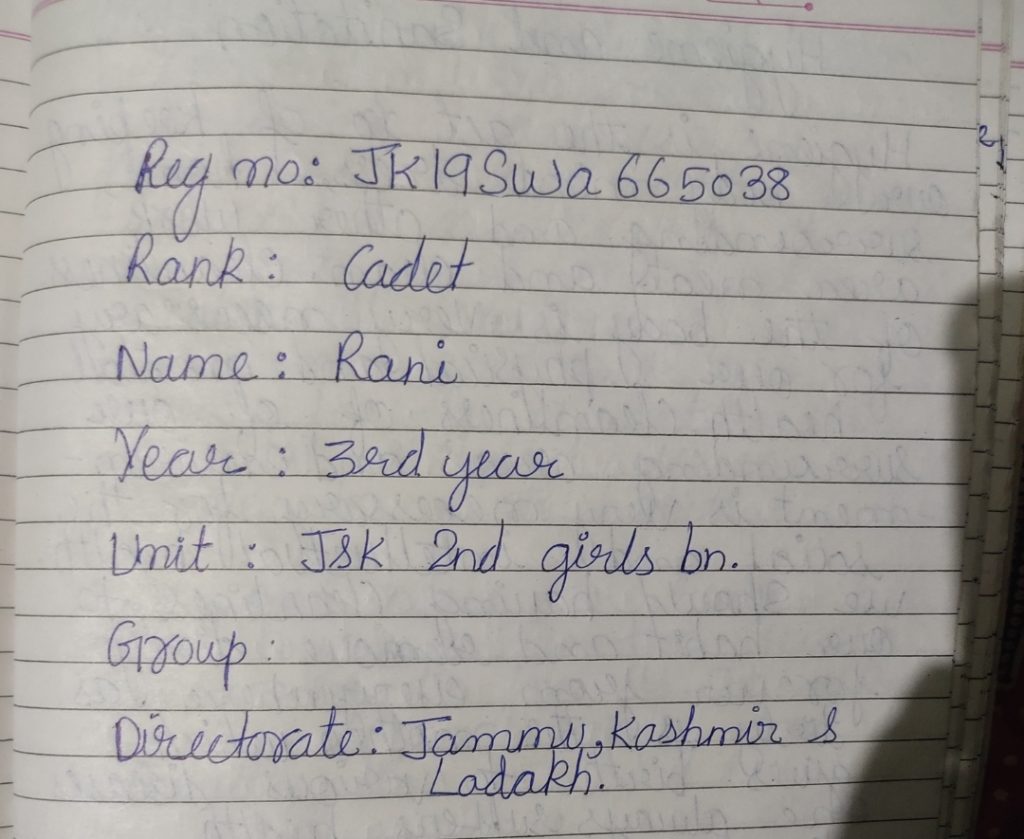 Reg no: JK19SWa665038
Rank: Cadet
Name: Rani
Year: 3rd year
Unit: J&K 2nd girls bn.
Group:
Directorate: Jammu, Kashmir &
Ladakh.